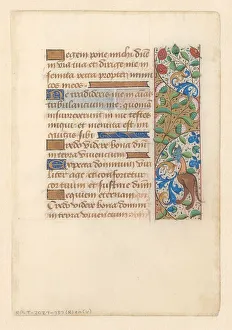 Legem pone michi dñe
in via tua et dirige me in
semita recta propter inimi
cos meos.
Ne tradideris me in aĩas
tribulancium me: quoniã
insurrexerunt in me testes
iniqui: et mentita est ini
quitas sibi
Credo videre bona dñi
in terra viuencium
Expecta dominum vi
riliter age et confortetur
cor tuum et sustine dñm
Requiem eternam
Credo videre bona domini
in terra viuencium